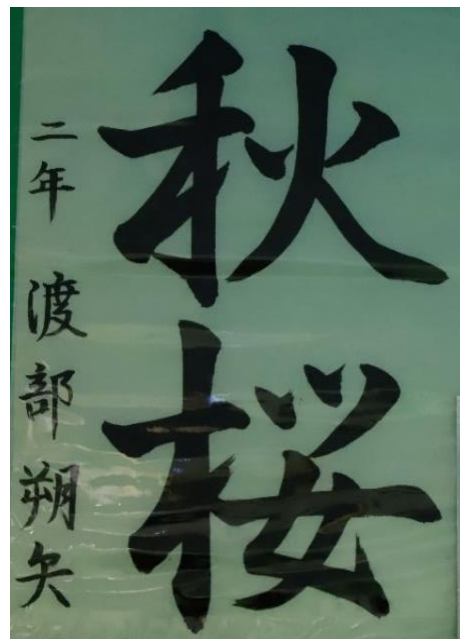 秋桜
二年 渡部朔矢